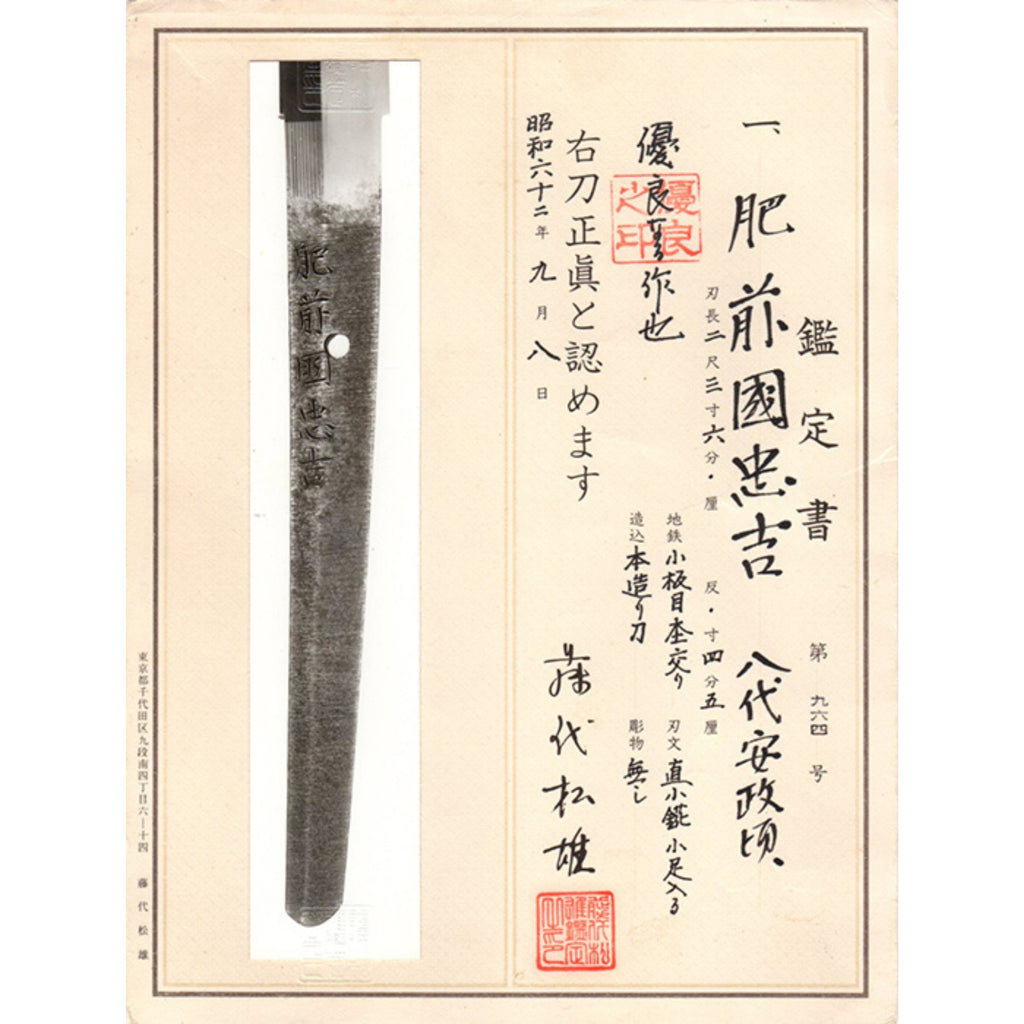 鑑定書
第九六四号
一、肥前國忠吉 八代安政頃、
刃長二尺三寸六分・厘 反・寸四分五厘
地鉄小板目杢交り 刃文直小錵小足入る
造込本造り刀 彫物無し
優良
作也
優良之印
右刀正眞と認めます
昭和六十二年九月八日
藤代松雄
肥前國忠吉
東京都千代田区九段南四丁目六―十四 藤代松雄